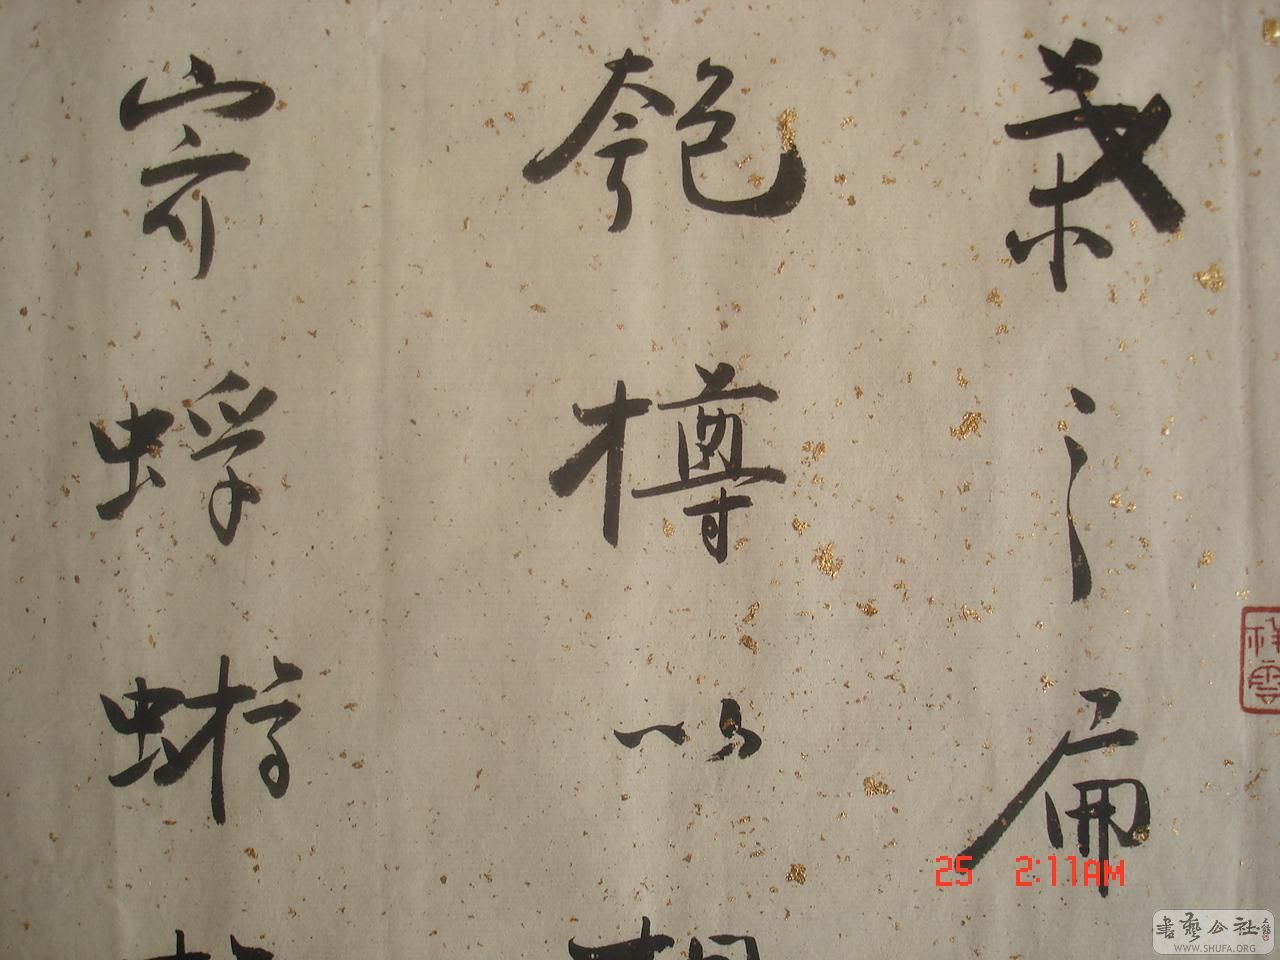 葉之扁
匏樽以相
寄蜉蝣於
祥雲
25 2:11AM
書藝公社
WWW.SHUFA.ORG